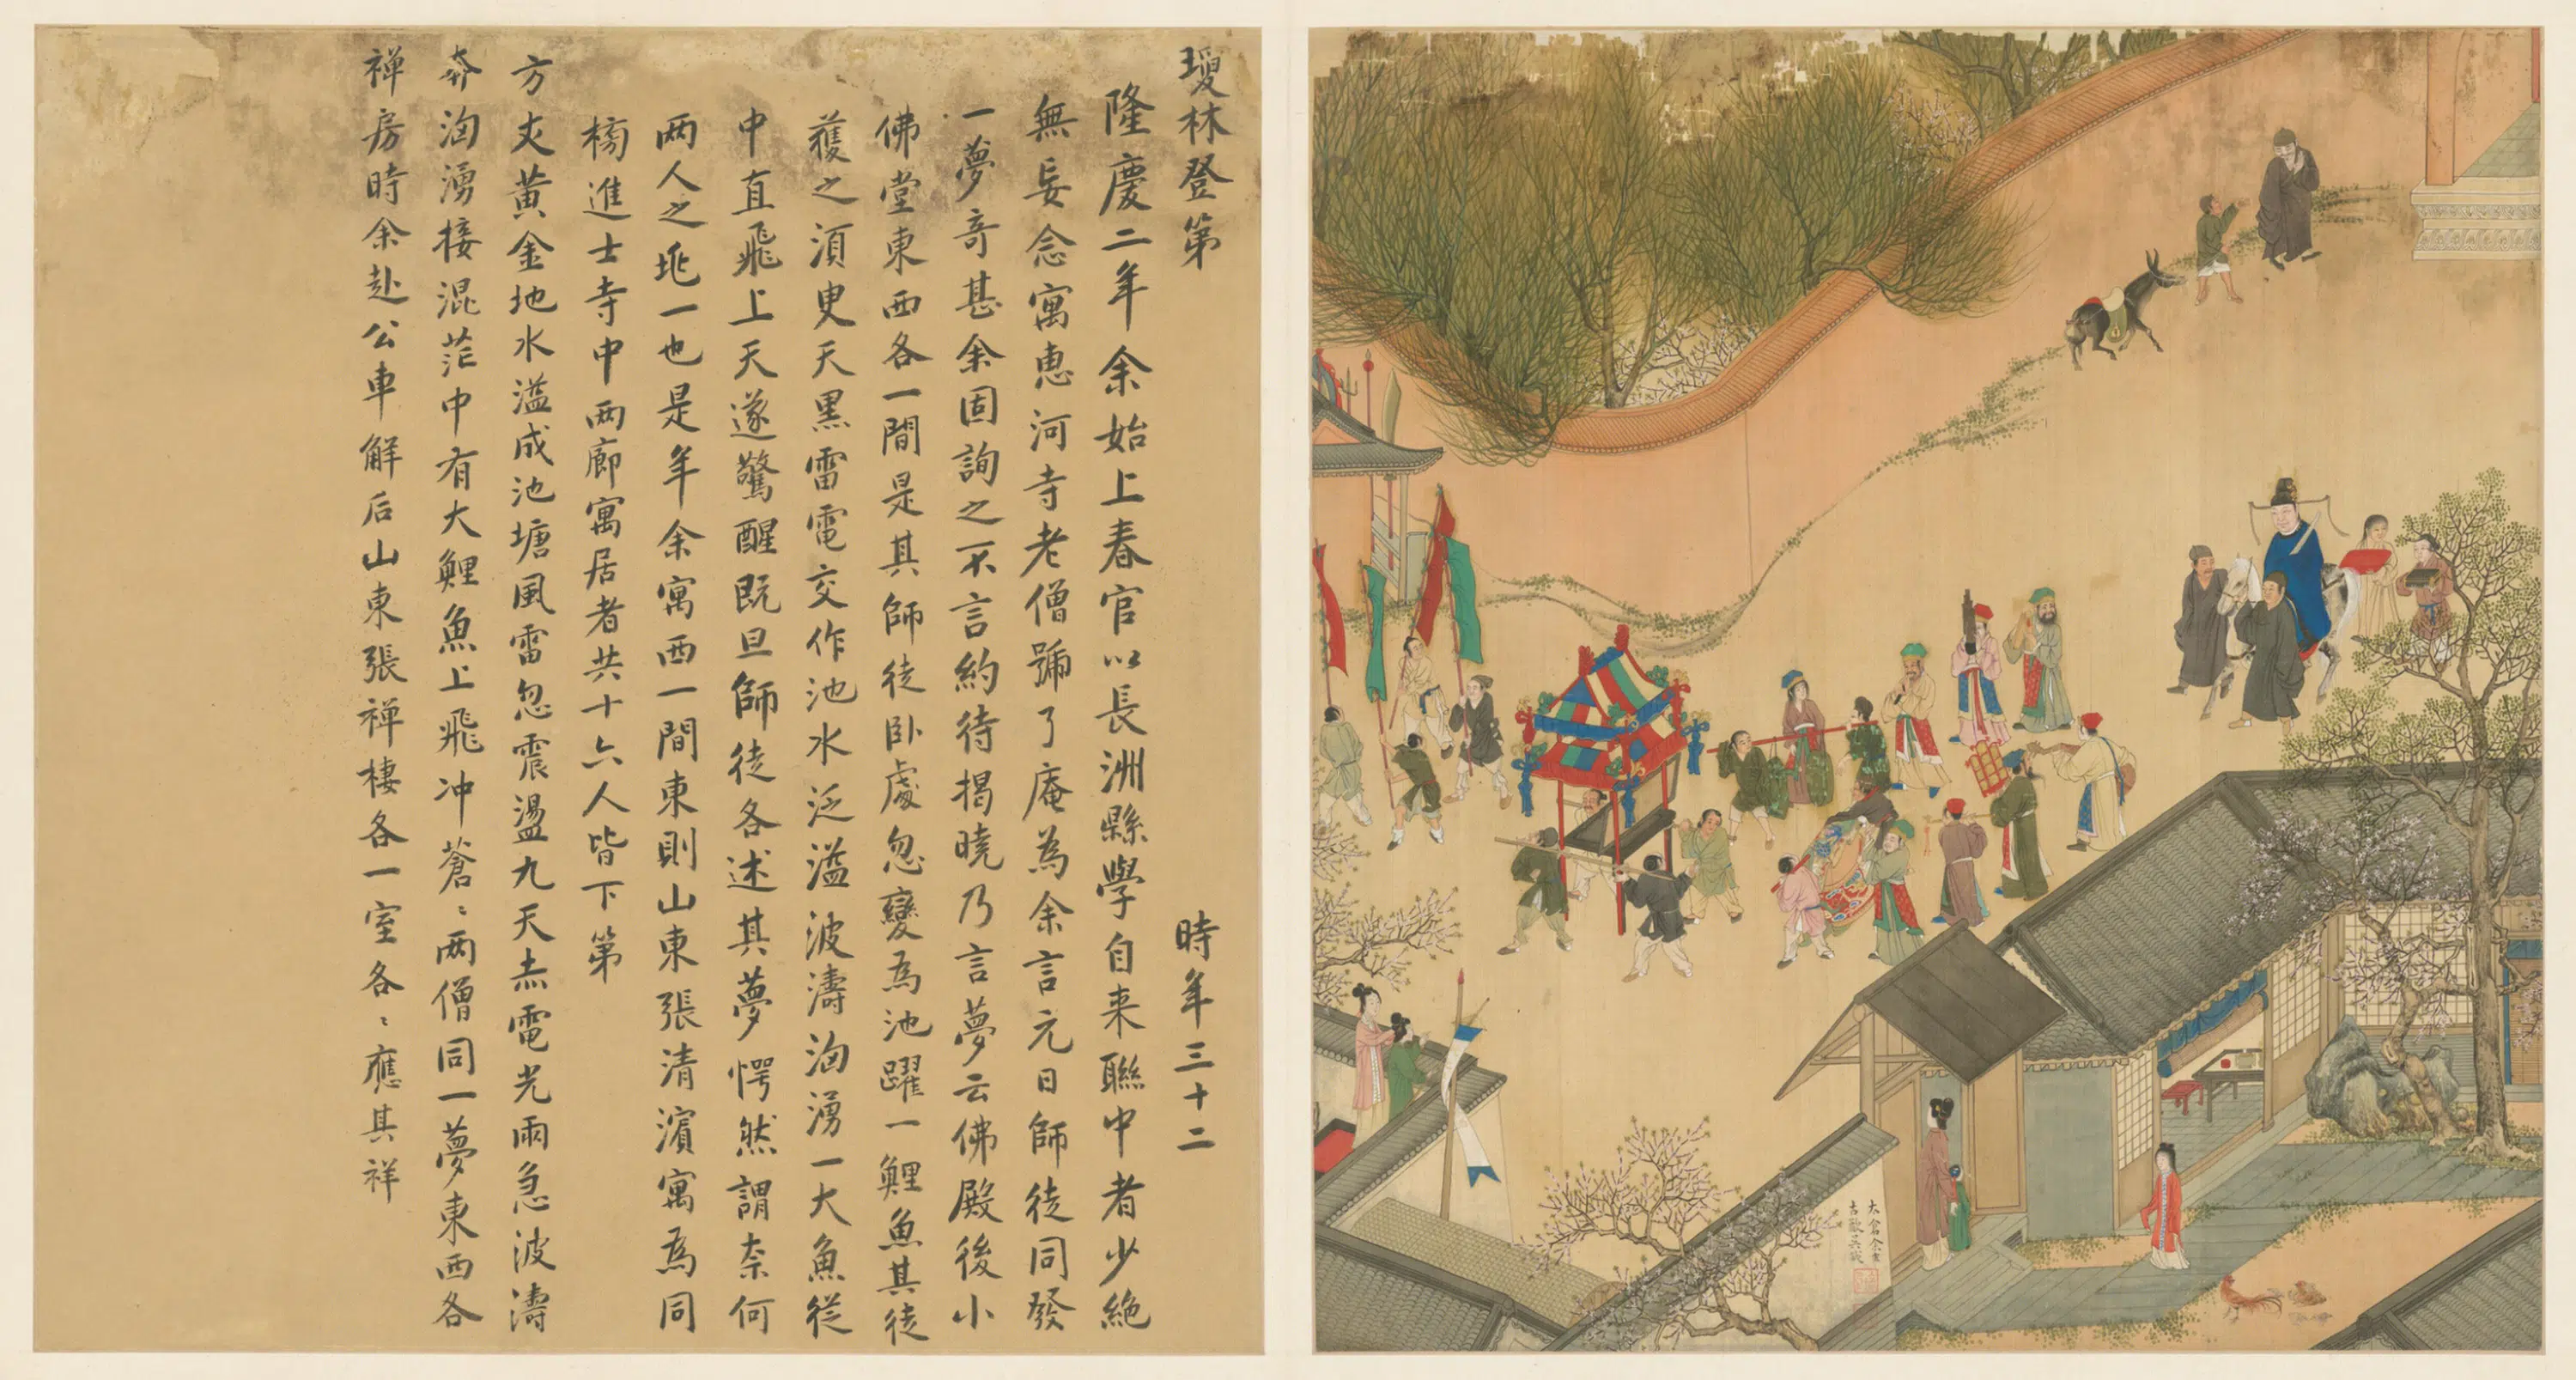 瓊林登第 時年三十二
隆慶二年余始上春官以長洲縣學自来聯中者少絶
無妄念寓恵河寺老僧號了庵為余言元日師徒同發
一夢竒甚余固詢之不言約待揭曉乃言夢云佛殿後小
佛堂東西各一間是其師徒卧處忽變為池躍一鯉魚其徒
獲之須臾天黒雷電交作池水泛溢波濤洶湧一大魚從
中直飛上天遂驚醒既旦師徒各述其夢愕然謂柰何
两人之兆一也是年余寓西一間東則山東張清濵寓為同
榜進士寺中两廊寓居者共十六人皆下第
方丈黄金地水溢成池塘風雷忽震盪九天赤電光雨急波濤
奔洶湧接混茫中有大鯉魚上飛冲蒼〻两僧同一夢東西各
禅房時余赴公車解后山東張禅棲各一室各〻應其祥
太倉余士
古歙吴鉞